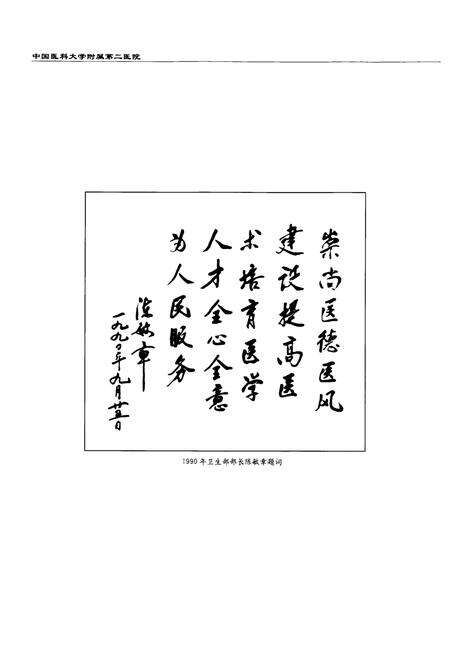 中国医科大学附属第二医院
崇尚医德医风
建设提高医
术培育医学
人才全心全意
为人民服务
陈敏章
一九九〇年九月廿五日
1990年卫生部部长陈敏章题词